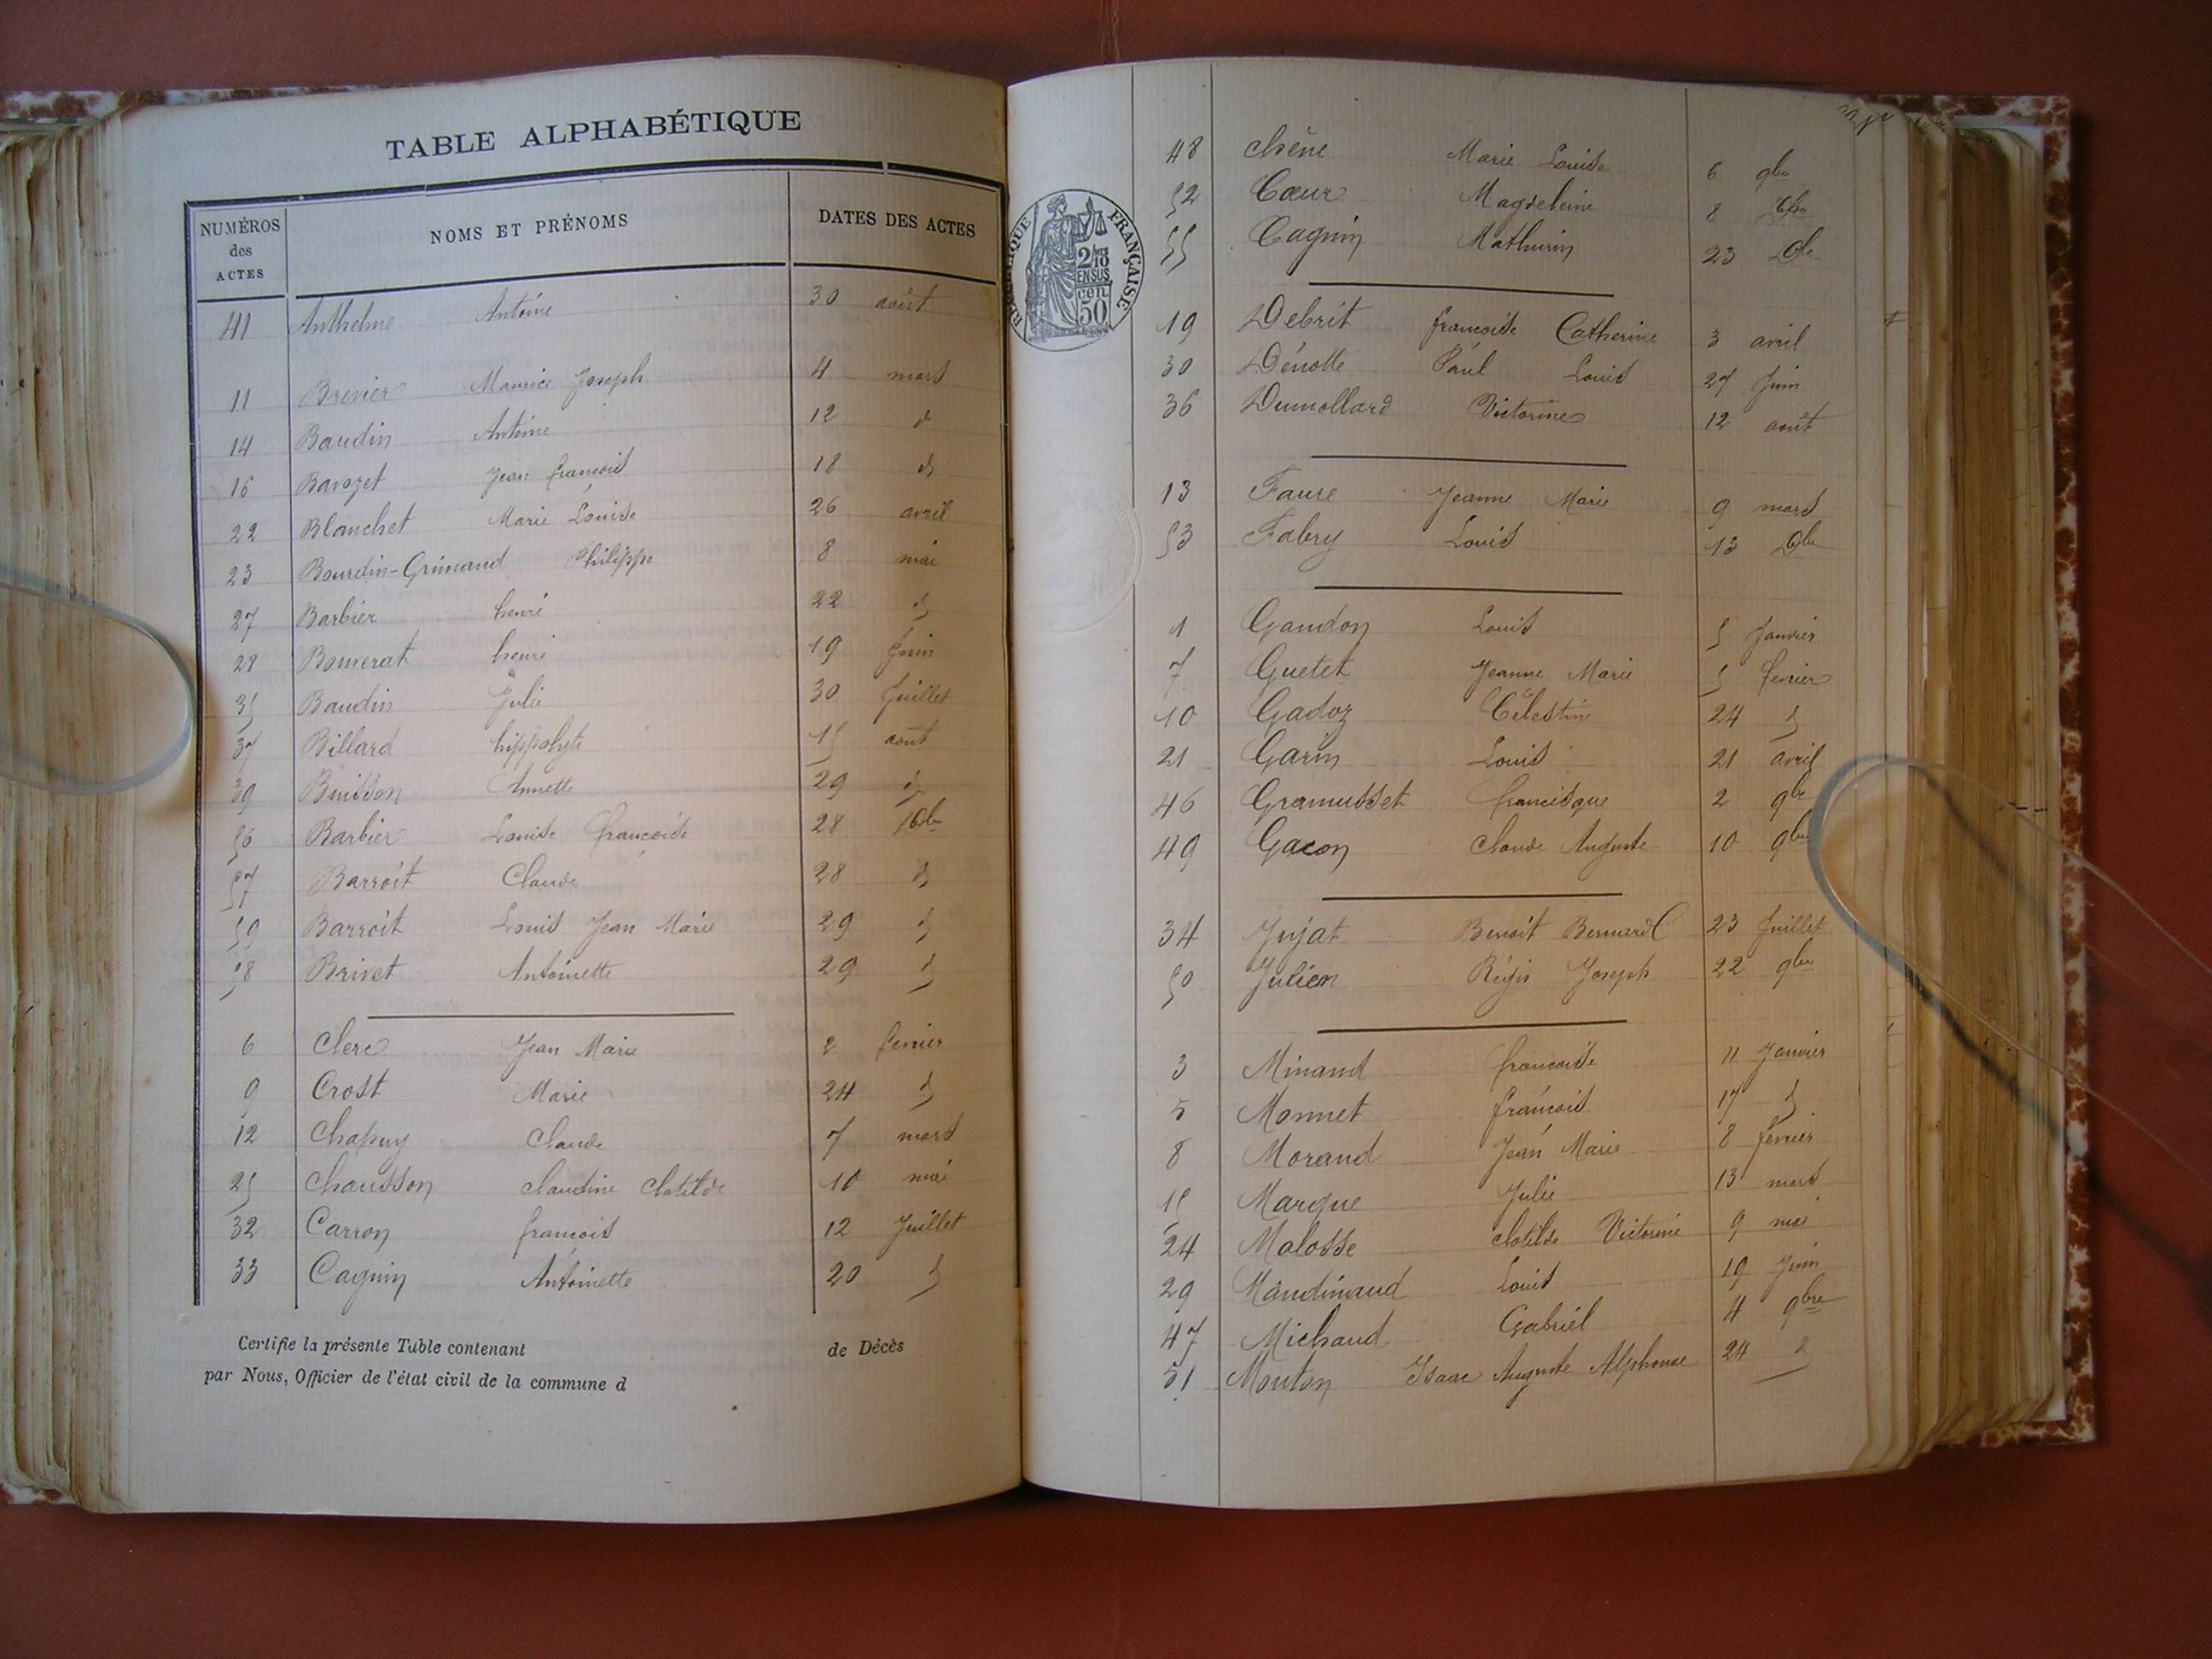 TABLE ALPHABÉTIQUE
NUMÉROS des ACTES NOMS ET PRÉNOMS DATES DES ACTES
41 Anthelme Antoine 30 août
11 Brevier Maurice Joseph 4 mars
14 Baudin Antoine 12 d
16 Bavozet Jean françois 18 d
22 Blanchet Marie Louise 26 avril
23 Bourdin-Grimaud Philippe 8 mai
27 Barbier henri 22 d
28 Bouverat henri 19 Juin
35 Baudin Julie 30 Juillet
37 Billard hippolyte 15 août
39 Buisson Annette 29 d
56 Barbier Louise françoise 28 Xbre
57 Barroit Claude 28 d
59 Barroit Louis Jean Marie 29 d
58 Brivet Antoinette 29 d
6 Clerc Jean Marie 2 fevrier
9 Crost Marie 24 d
12 Chapuy Claude 7 mars
25 Chausson Claudine Clotilde 10 mai
32 Carron françois 12 Juillet
33 Cagnin Antoinette 20 d
Certifie la présente Table contenant de Décès
par Nous, Officier de l'état civil de la commune d
RÉPUBLIQUE FRANÇAISE
2/10
EN SUS
cen
50
48 Chêne Marie Louise 6 9bre
52 Cœur Magdeleine 8 Xbre
55 Cagnin Mathurin 23 Xbre
19 Debrit françoise Catherine 3 avril
30 Dénotte Paul Louis 27 Juin
36 Dumollard Victorine 12 août
13 Faure Jeanne Marie 9 mars
53 Fabry Louis 13 Xbre
1 Gaudon Louis 5 Janvier
7 Guetet Jeanne Marie 5 fevrier
10 Gadoz Célestine 24 d
21 Garin Louis 21 avril
46 Gramusset francisque 2 9bre
49 Gacon Claude Auguste 10 9bre
34 Jujat Benoit Bernard 23 Juillet
50 Julien Régis Joseph 22 9bre
3 Minand françoise 11 Janvier
5 Monnet françois 17 d
8 Morand Jean Marie 8 février
15 Marque Julie 13 mars
24 Malosse Clotilde Victorine 9 mai
29 Mandinaud Louis 19 Juin
47 Michaud Gabriel 4 9bre
51 Mouton Isaac Auguste Alphonse 24 d